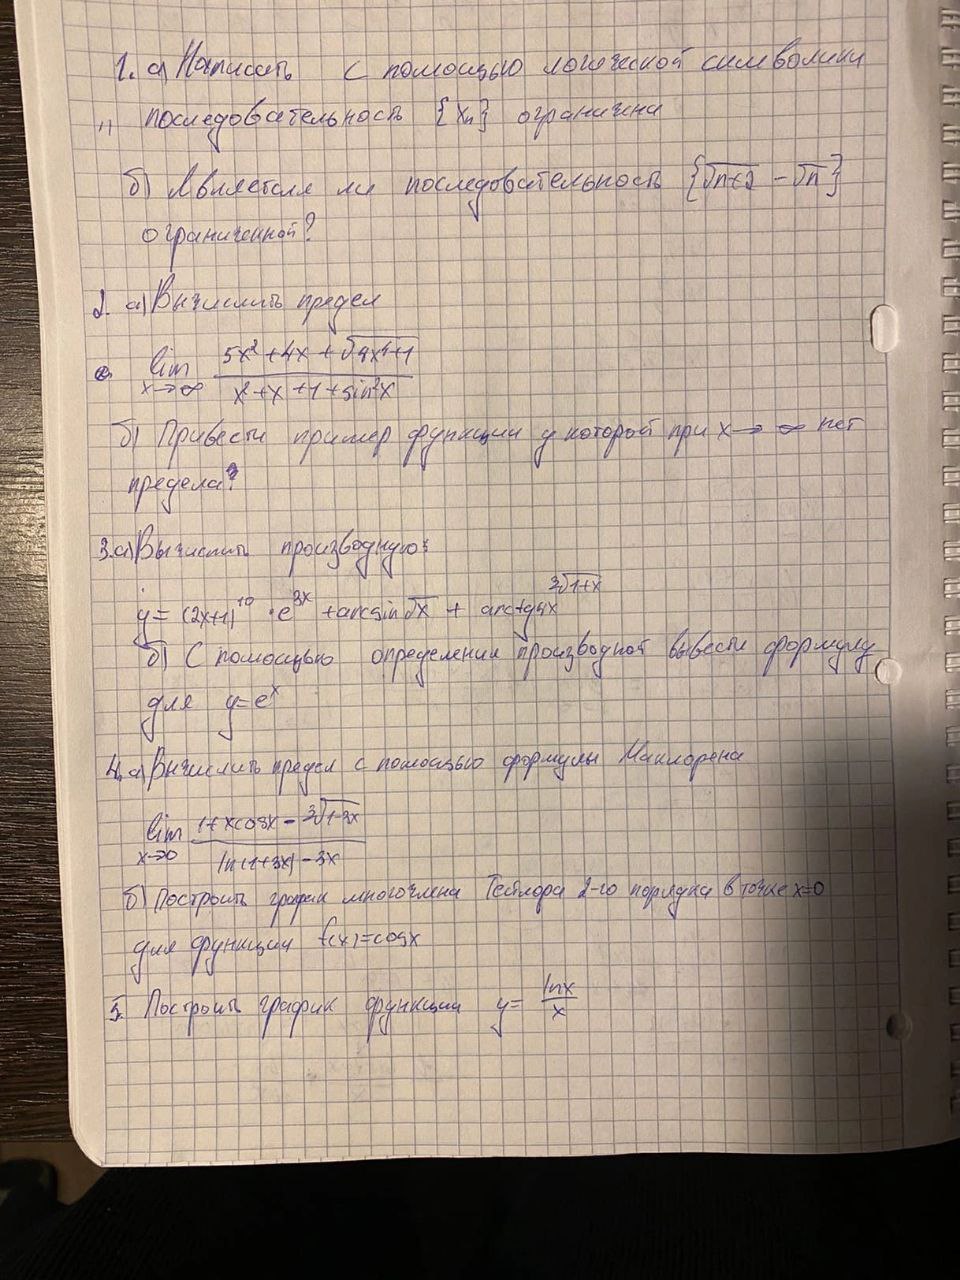 1. а) Написать с помощью логической символики
" последовательность {xₙ} ограничена
б) Является ли последовательность {√n+2 - √n}
ограниченной?
2. а) Вычислить предел
lim x→∞ (5x² + 4x + √(4x⁴+1)) / (x² + x + 1 + sin²x)
б) Привести пример функции у которой при x → ∞ нет
предела?
3. а) Вычислить производную:
y = (2x+1)¹⁰ · e³ˣ + arcsin √x + arctg 4x ³√1+x
б) С помощью определения производной вывести формулу
для y = eˣ
4. а) Вычислить предел с помощью формулы Маклорена
lim x→0 (1 + x cos x - ³√1-3x) / (ln(1+3x) - 3x)
б) Построить график многочлена Тейлора 2-го порядка в точке x=0
для функции f(x) = cos x
5. Построить график функции y = ln x / x